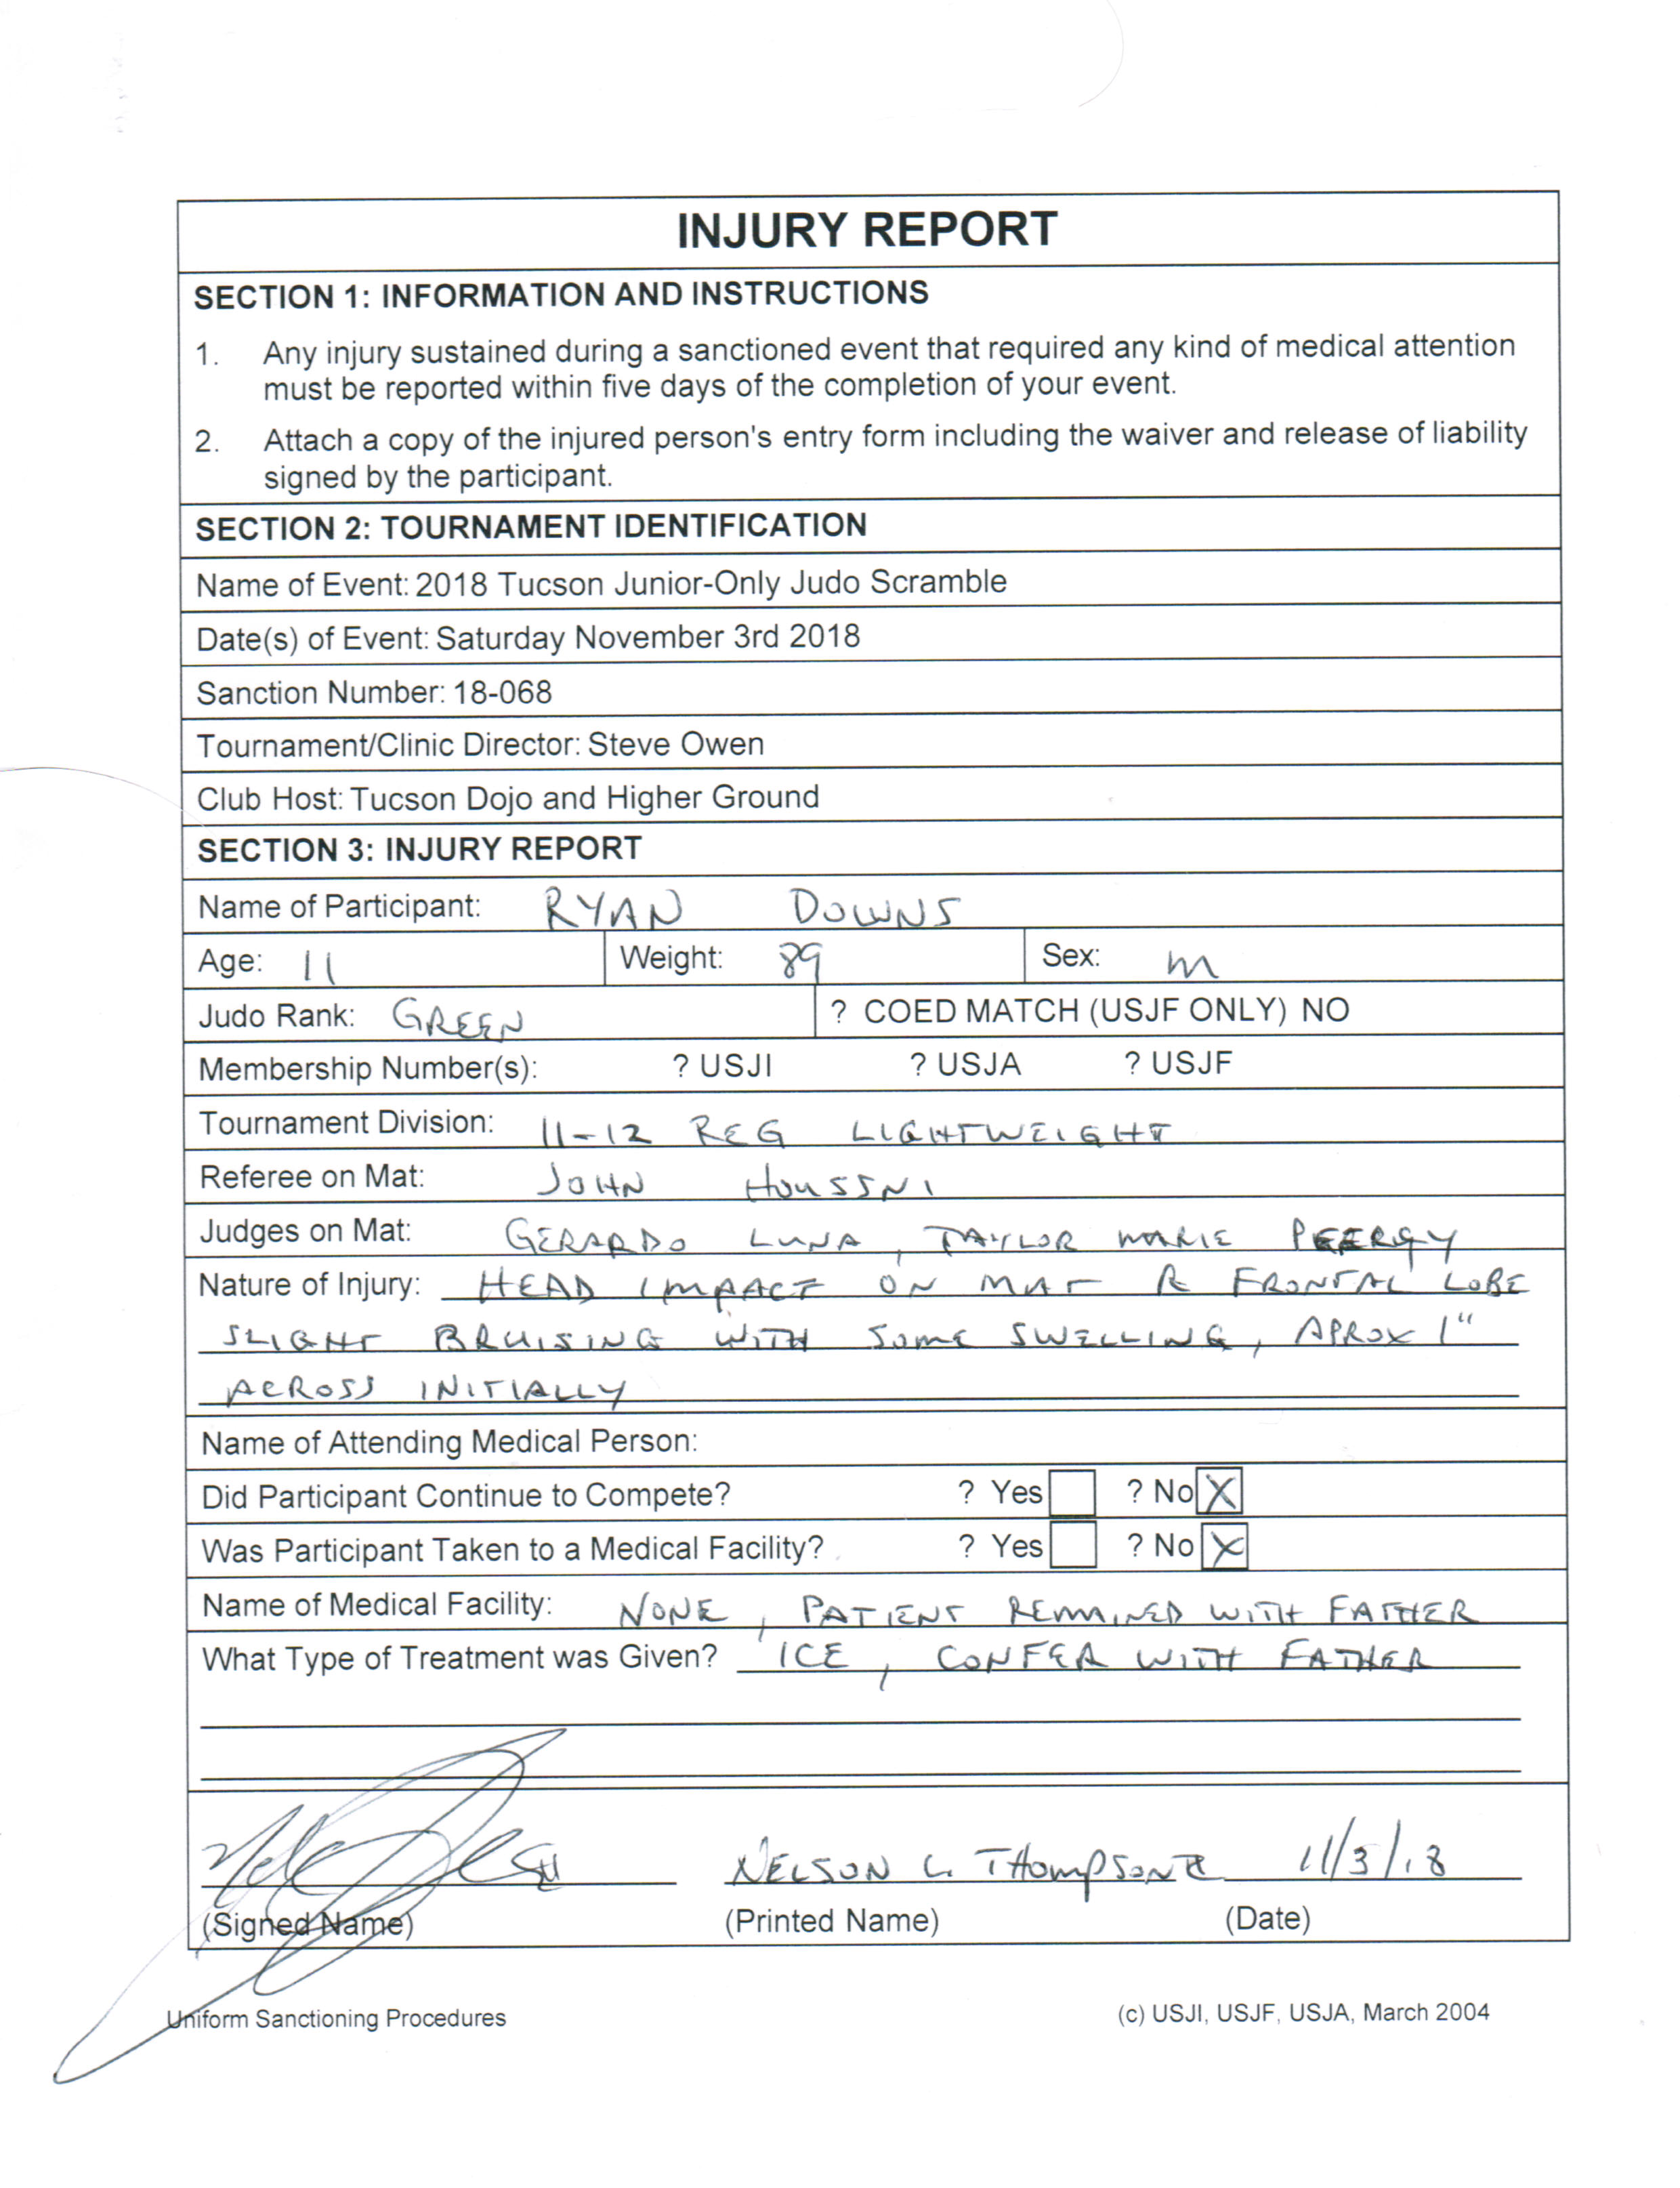 INJURY REPORT
SECTION 1: INFORMATION AND INSTRUCTIONS
1. Any injury sustained during a sanctioned event that required any kind of medical attention
must be reported within five days of the completion of your event.
2. Attach a copy of the injured person's entry form including the waiver and release of liability
signed by the participant.
SECTION 2: TOURNAMENT IDENTIFICATION
Name of Event: 2018 Tucson Junior-Only Judo Scramble
Date(s) of Event: Saturday November 3rd 2018
Sanction Number: 18-068
Tournament/Clinic Director: Steve Owen
Club Host: Tucson Dojo and Higher Ground
SECTION 3: INJURY REPORT
Name of Participant: RYAN DOWNS
Age: 11 Weight: 89 Sex: M
Judo Rank: GREEN ? COED MATCH (USJF ONLY) NO
Membership Number(s): ? USJI ? USJA ? USJF
Tournament Division: 11-12 REG LIGHTWEIGHT
Referee on Mat: JOHN HOUSSNI
Judges on Mat: GERARDO LUNA, TAYLOR MARIE
Nature of Injury: HEAD IMPACT ON MAT R FRONTAL LOBE
SLIGHT BRUISING WITH SOME SWELLING, APROX 1"
ACROSS INITIALLY
Name of Attending Medical Person:
Did Participant Continue to Compete? ? Yes ? No X
Was Participant Taken to a Medical Facility? ? Yes ? No X
Name of Medical Facility: NONE, PATIENT REMAINED WITH FATHER
What Type of Treatment was Given? ICE, CONFER WITH FATHER
NELSON L. THOMPSON 11/3/18
(Signed Name) (Printed Name) (Date)
Uniform Sanctioning Procedures (c) USJI, USJF, USJA, March 2004